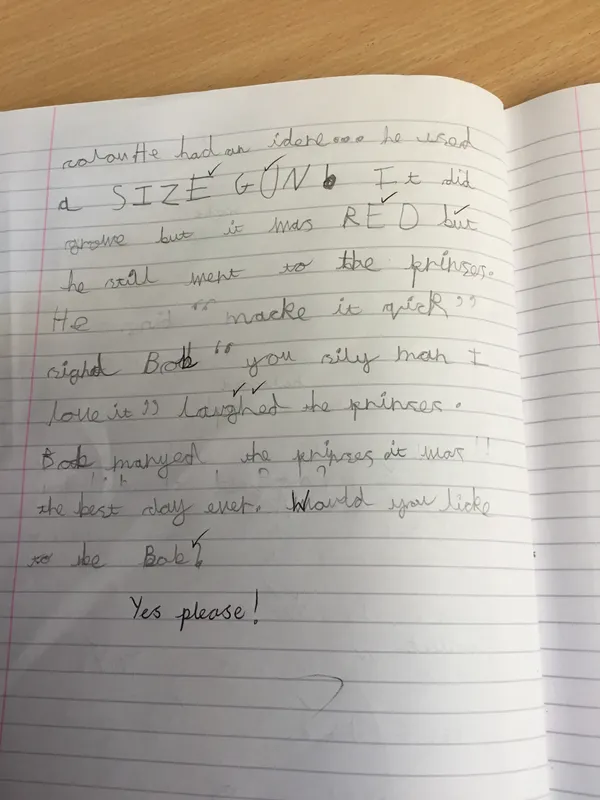 colouHe had an idere... he used
a SIZE GUN. It did
growe but it was RED but
he still went to the prinses.
He " macke it qick"
sighd Bob " you sily man I
love it" laughed the prinses.
Bob marryed the prinses it was
the best day ever. Whould you licke
to be Bob?
Yes please!